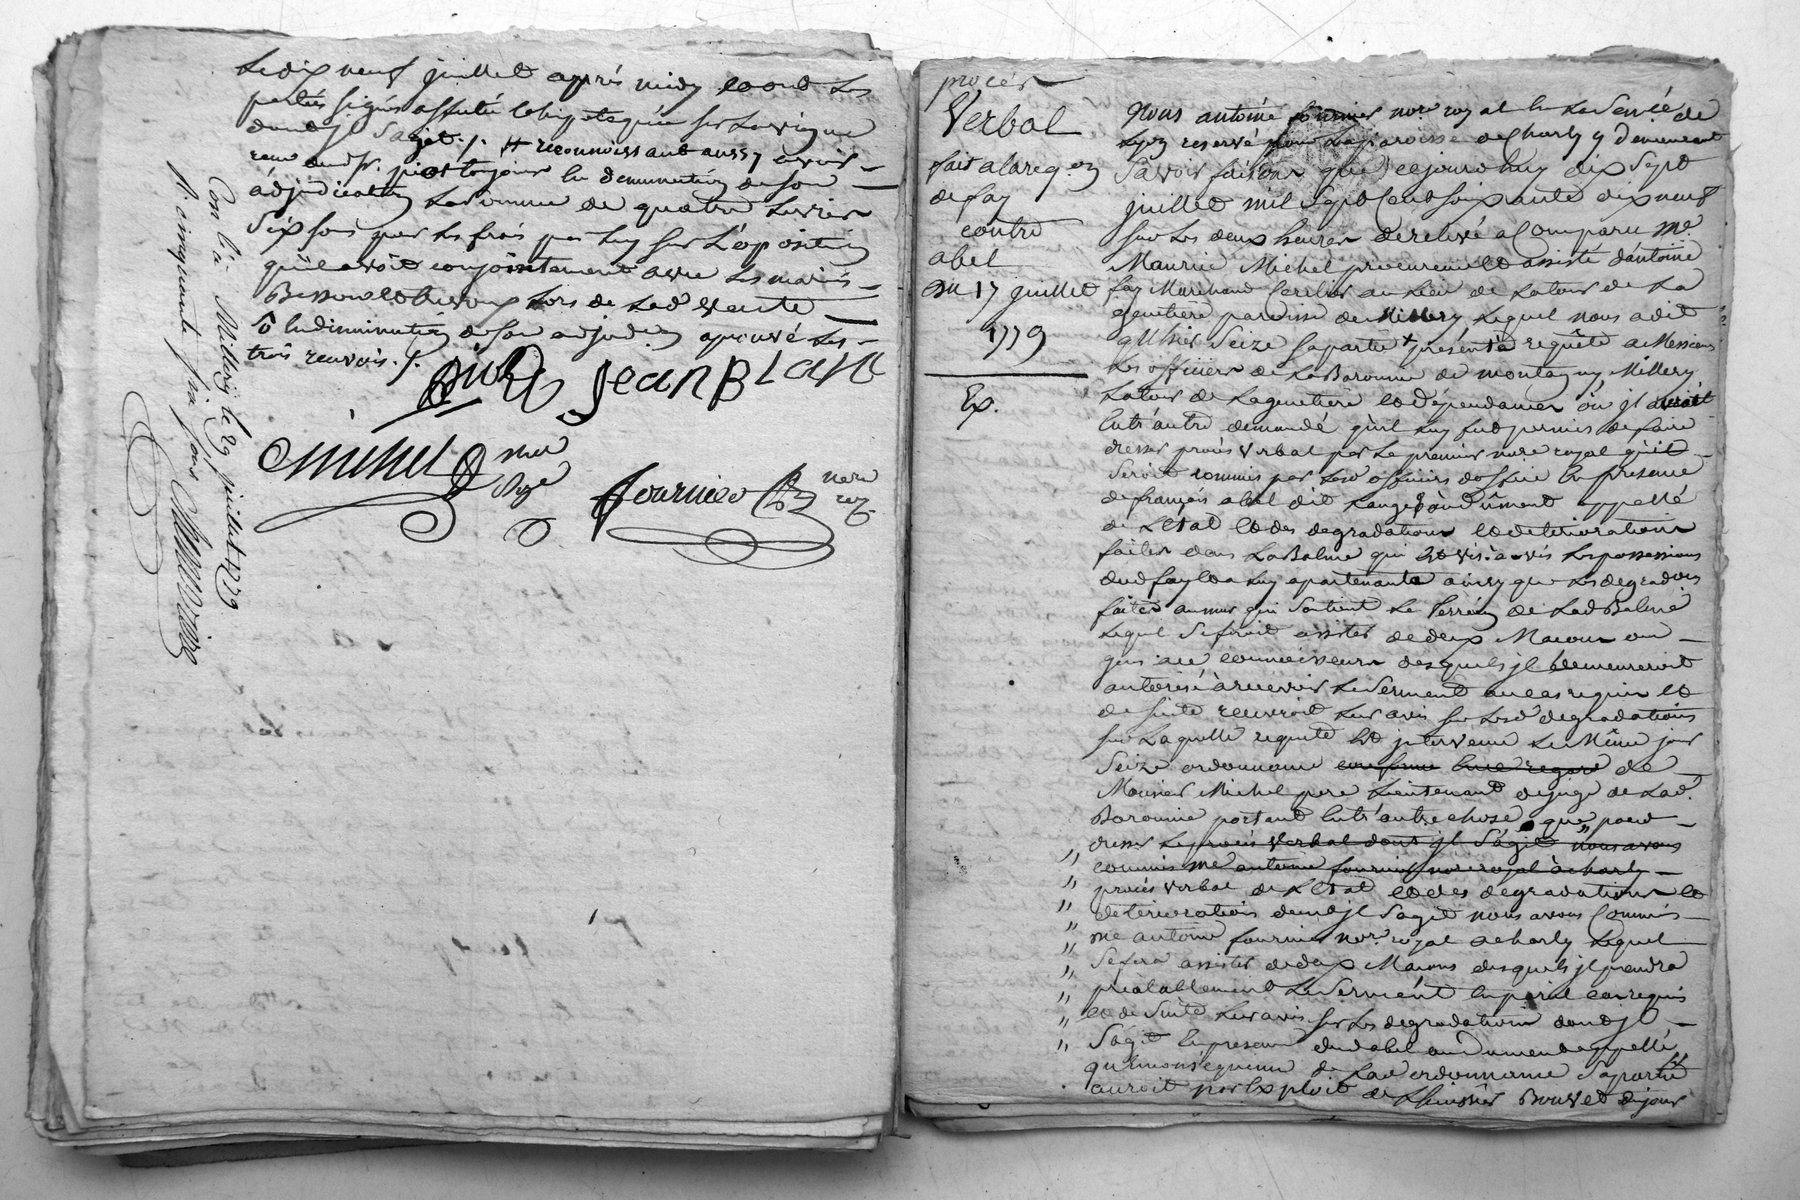 Le dix neuf juillet après midy et ont les
parties signés affecté et hipotequée sur la vigne
dont jl sagit ./. # reconnoissant aussy avoir
receu dud. sr. piot toujour en deminution de son
adjudication la somme de quatre livres
six sous pour les frais par luy sur l'oposition
qu'il avoit conjointement avec les mariés
lors de lad. vente
à la diminution de son adjud.on aprouvé les
trois renvois ./.
Jean Blanc
Michel
fournier
nore
roy.
Con.lé à Millery le 29 juillet 1779
R. cinquante six sous
procés
Verbal
fait a la req.on
de fay
contre
abel
Du 17 juillet
1779
Ex.
Nous antoine fournier nore. royal en la Sen.cée de
Lyon reservé pour la paroisse de Charly y demeurant
Savoir faisons que cejourd'huy dix sept
juillet mil sept cent soixante dix neuf
sur les deux heures de relevé a comparu me.
Maurice Michel procureur et assisté d'antoine
fay Marchand au lieu de la tour de la
paroisse de Millery lequel nous a dit
qu'hier Seize sa partie présenta requête a Messieurs
les officiers de la Baronnie de montagny, Millery
Latour de et dépendances où jl avoit
entr'autre demandé qu'il luy fut permis de faire
dresser procés verbal par le premier nore royal qu'il
seroit commis par lesd. officiers en presence
de françois abel dit ou dûment appellé
de l'Etat et des degradations et deteriorations
faites dans la Balme qui est vis-à-vis les possessions
dud. fay et a luy apartenante ainsy que les degradons
faites au mur qui soutient le terrein de lad. Balme
lequel se feroit assister de deux Macons ou
gens a ce connoisseurs desquels jl demeureroit
autorisé à recevoir le serment au cas requis et
de suite recevroit leur avis sur lesd. degradations
sur laquelle requete est jntervenu le Même jour
Seize ordonnance de
Monsieur Michel pere Lieutenant de juge de lad.
Baronnie portant entr'autre chose que pour
dresser le procés verbal dont jl s'agit nous avons
commis me antoine fournier nore royal à charly
" procés verbal de l'Etat et des degradations et
" deteriorations dont jl s'agit nous avons Commis
" me antoine fournier nore. royal a charly lequel
" se fera assister de deux Macons desquels jl prendra
" préalablement le serment en pareil cas requis
" et de suite leur avis sur les degradations dont jl
" s'agit en presence dud. abel ou dument appellé
qu'en consequence de lad. ordonnance sa partie
auroit par Exploit de L'huissier Bouvet du jour